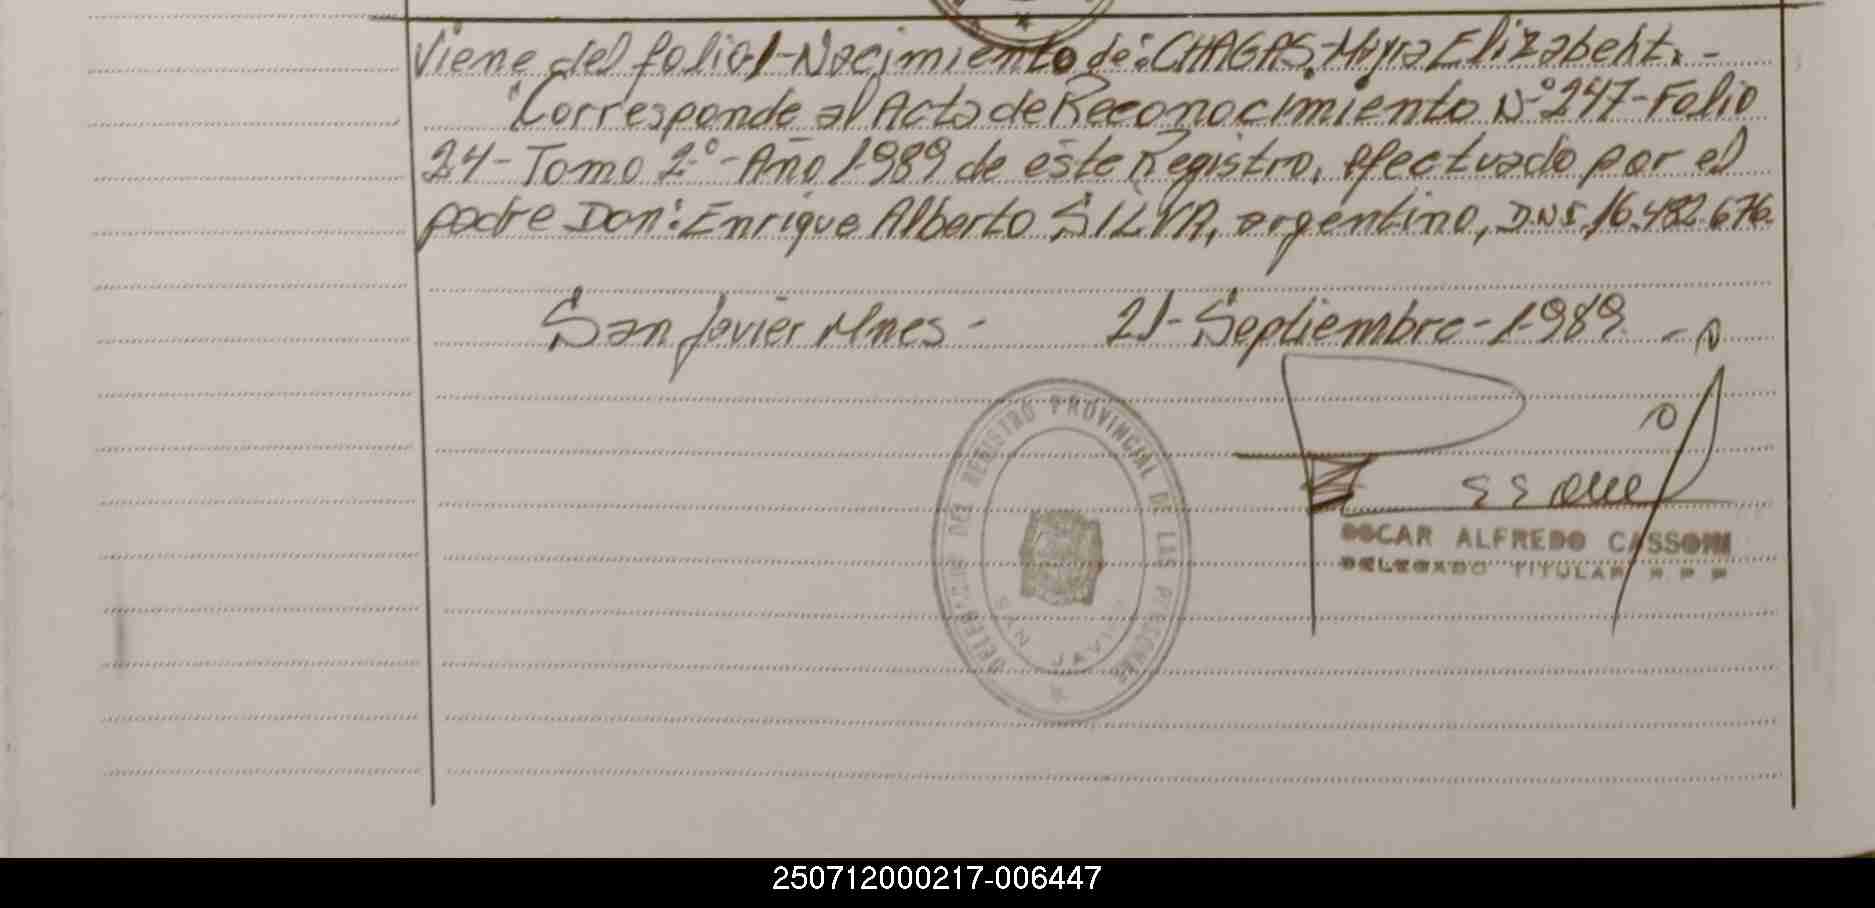 Viene del folio 1-Nacimiento de: CHAGAS, Mayra Elizabeht.-
"Corresponde al Acta de Reconocimiento Nº 247-Folio
24-Tomo 2º-Año 1989 de este Registro, efectuado por el
padre Don: Enrique Alberto SILVA, argentino, D.N.I. 16.482.676.
San Javier Mnes - 21-Septiembre-1989.-
DEL REGISTRO PROVINCIAL DE LAS PERSONAS
SAN JAVIER
OSCAR ALFREDO CASSONI
DELEGADO TITULAR R P P
250712000217-006447